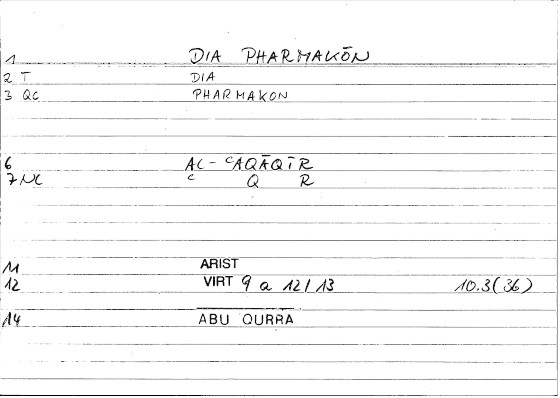 1 DIA PHARMAKŌN
2 T DIA
3 QC PHARMAKON
6 AL-ᶜAQĀQĪR
7 NC ᶜ Q R
11 ARIST
12 VIRT 9 a 12/13 10.3(36)
14 ABU QURRA